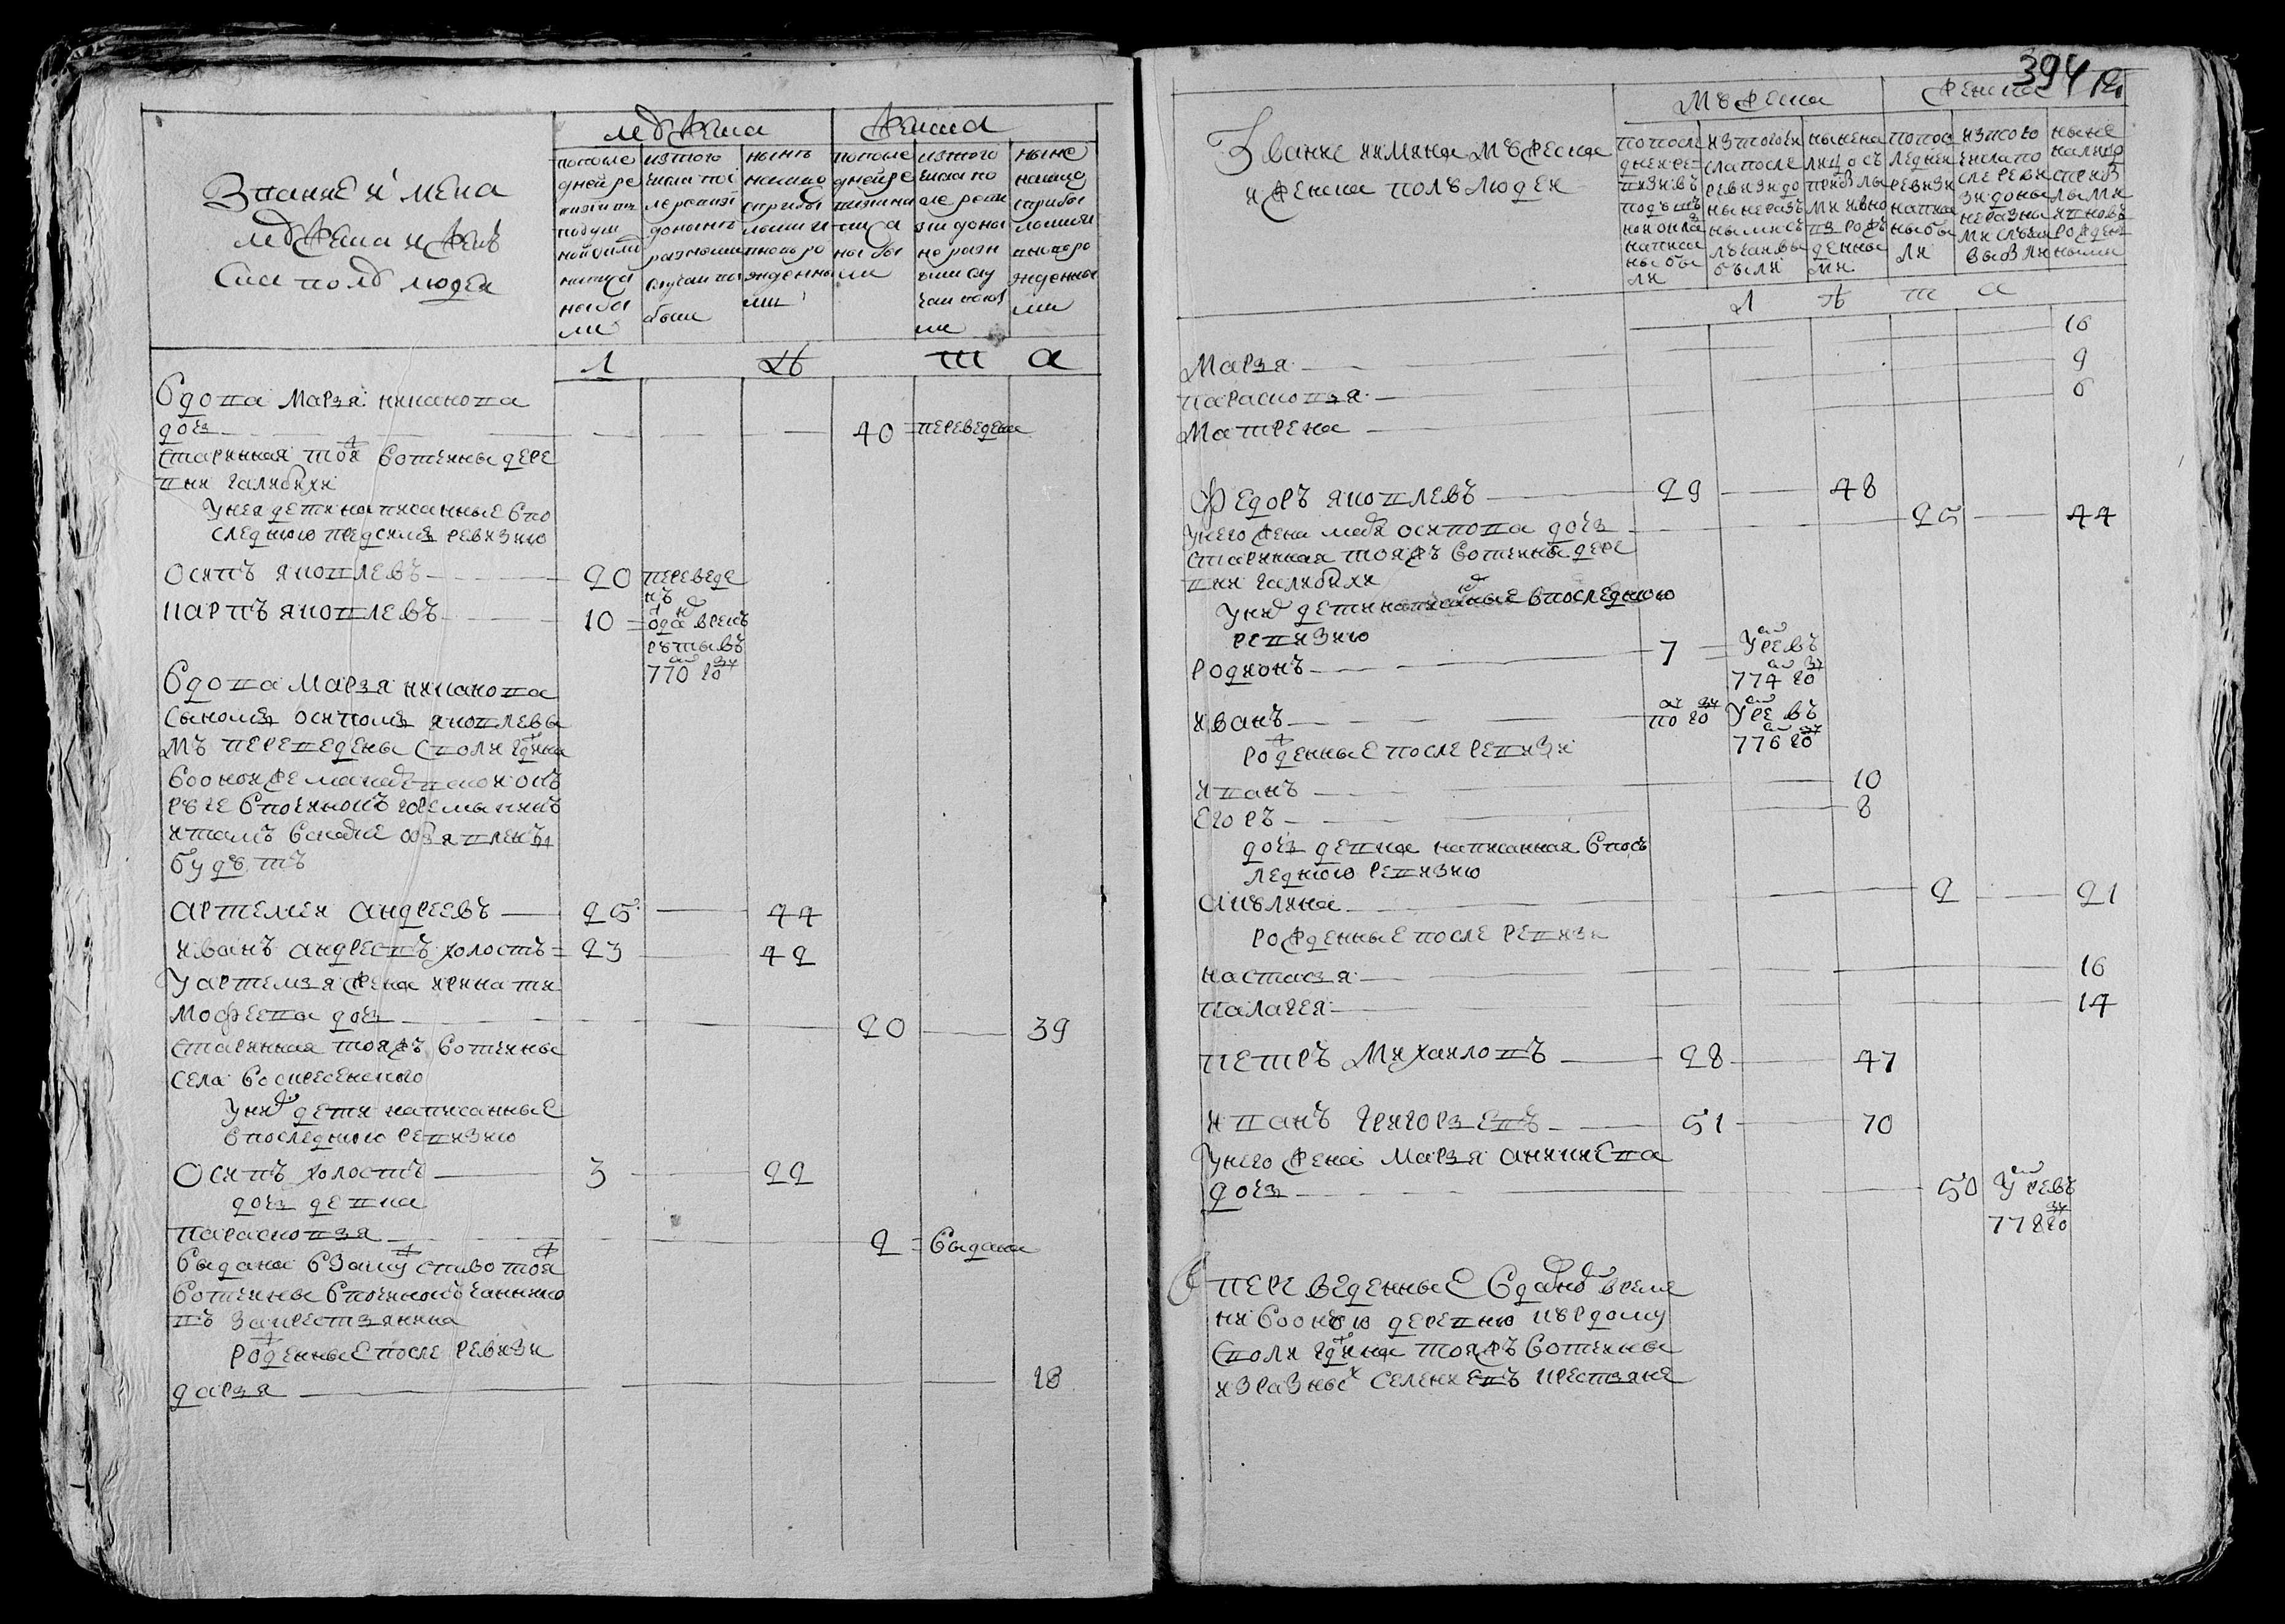 Звание и мена
мужеска и жен
ска полу людей
мужеска
женска
после
дней ре
визии въ
подуш
ной оклад
написа
ны бы
ли
из того
числа по
сле ревизи
до нынъ
разными
случаи вы
были
нынъ
налицо
с прибы
лыми и
вновь ро
жденны
ми
по после
дней ре
визии на
писа
ны бы
ли
из того
числа по
сле реви
зии доны
не разн
ыми слу
чаи выбы
ли
ныне
налицо
с прибы
лыми и
вновь ро
жденны
ми
л ѣ т а
вдова марья никанова
дочь 40 переведена
старинная тоя ж вотчины дере
вни галибихи
у нея дети написанные в по
следнюю пред сим ревизию
осипъ яковлевъ 20 переведе
нъ
карпъ яковлевъ 10 одан в рек
рутывъ
770 году
вдова марья никанова
сыномъ осипомъ яковлевы
мъ переведены с поли годика
в оной же
итамъ в скаске объявленъ
будутъ
артемей андреевъ 25 44
иванъ андреевъ холостъ 23 42
у артемья жена ирина ти
мофеева дочь 20 39
старинная тояжъ вотчины
села воскресенского
у них дети написанные
в последнюю ревизию
Осипъ холостъ 3 22
дочь девка
парасковья 2 выдана
выдана в замуство тоя ж
вотчины
въ за крестьянина
рожденные после ревизи
дарья 18
394
Звание имяна мужеска
и женска полъ людей
мужеска
женска
по после
дней ре
визивъ
подъшъ
ной окла
написа
ны бы
ли
из того чи
сла после
ревизи до
ны не разъ
ными сл
учаи вы
были
ны не на
лицо съ
прибылы
ми и вно
вь рож
денны
ми
по пос
ледней
ревизи
написа
ны бы
ли
из того
числа по
сле реви
зи доны
не разны
ми случаи
выбыли
ныне
налицо
с приб
лыми
и вновь
рожден
ными
л ѣ т а
16
марья 9
парасковья 6
матрена
федоръ яковлевъ 29 48
у него жена марья осипова дочь 25 44
старинная тояжъ вотчины дере
вни галибихи
у них дети написанные в последнюю
ревизию
родионъ 7 умре въ
774 году
иванъ по году умре въ
776 году
рожденные после ревизи
иванъ 10
егоръ 8
дочь девка написанная в посъ
леднюю ревизию
акулина 2 21
рожденные после ревизи
настасья 16
палагея 14
петръ михаиловъ 28 47
иванъ григорьевъ 51 70
у него жена марья аникиева
дочь 50 умре въ
778 году
переведенные в давно време
ни в оную деревню
с поли годика тояжъ вотчины
из разных селениевъ крестьяне